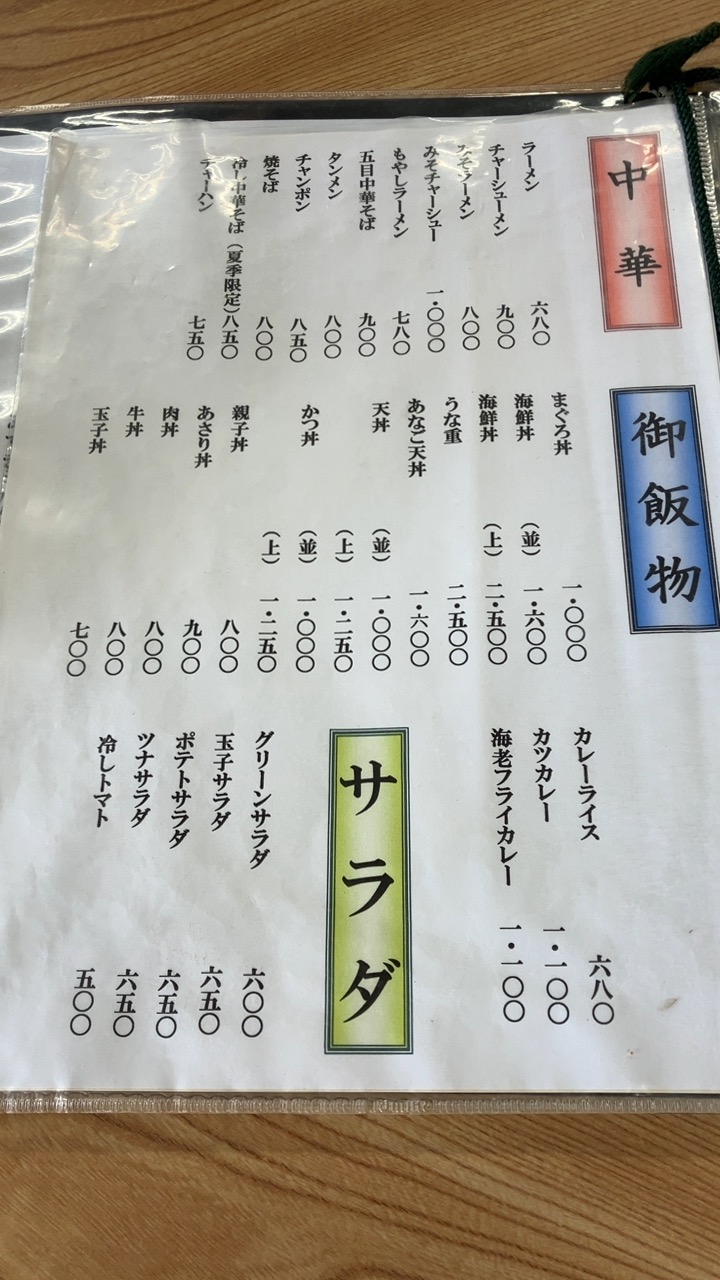 中華
ラーメン 六八〇
チャーシューメン 九〇〇
みそラーメン 八〇〇
みそチャーシュー 一・〇〇〇
もやしラーメン 七八〇
五目中華そば 九〇〇
タンメン 八〇〇
チャンポン 八五〇
焼そば 八〇〇
冷し中華そば(夏季限定) 八五〇
チャーハン 七五〇
御飯物
まぐろ丼 一・〇〇〇
海鮮丼 (並) 一・六〇〇
海鮮丼 (上) 二・五〇〇
うな重 二・五〇〇
あなご天丼 一・六〇〇
天丼 (並) 一・〇〇〇
(上) 一・二五〇
かつ丼 (並) 一・〇〇〇
(上) 一・二五〇
親子丼 八〇〇
あさり丼 九〇〇
肉丼 八〇〇
牛丼 八〇〇
玉子丼 七〇〇
カレーライス 六八〇
カツカレー 一・一〇〇
海老フライカレー 一・一〇〇
サラダ
グリーンサラダ 六〇〇
玉子サラダ 六五〇
ポテトサラダ 六五〇
ツナサラダ 六五〇
冷しトマト 五〇〇